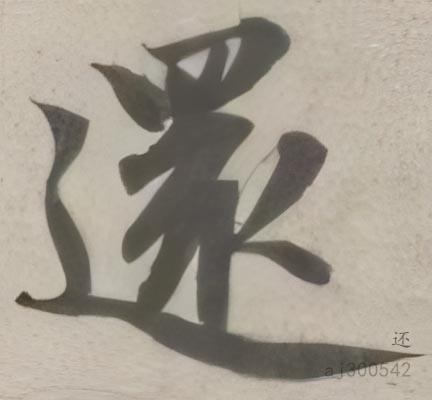 還
还
aj300542